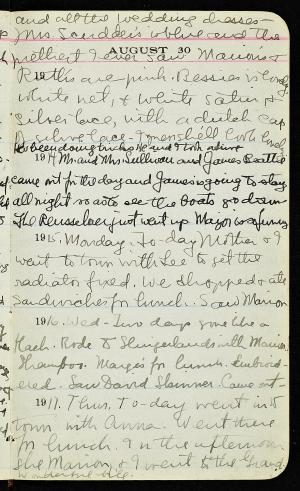 and all the wedding dresses
Mrs. Scudder's is blue and the
prettiest I ever saw. Marion's &
AUGUST 30
Ruth's are pink. Bessie's is lovely
white net, & white satin &
silver lace, with a dutch cap
1914 Mr and Mrs Sullivan and James Beattie
came out for the day and James is going to stay
all night so as to see the boats go down
The Rensselaer just went up Major is a funny
1915. Monday. To-day Mother & I
went to town with Lee to get the
radiator fixed. We shopped & ate
sandwiches for lunch. Saw Marion
1916. Wed - Two days gone like a
flash. Rode to Slingerlands with Marion
Shampoo. Margie for lunch. Embroid-
ered. Saw David Skinner. Came out-
1917. Thurs. To-day went into
town with Anna. Went there
for lunch. In the afternoon
she Marion, & I went to the Grand.